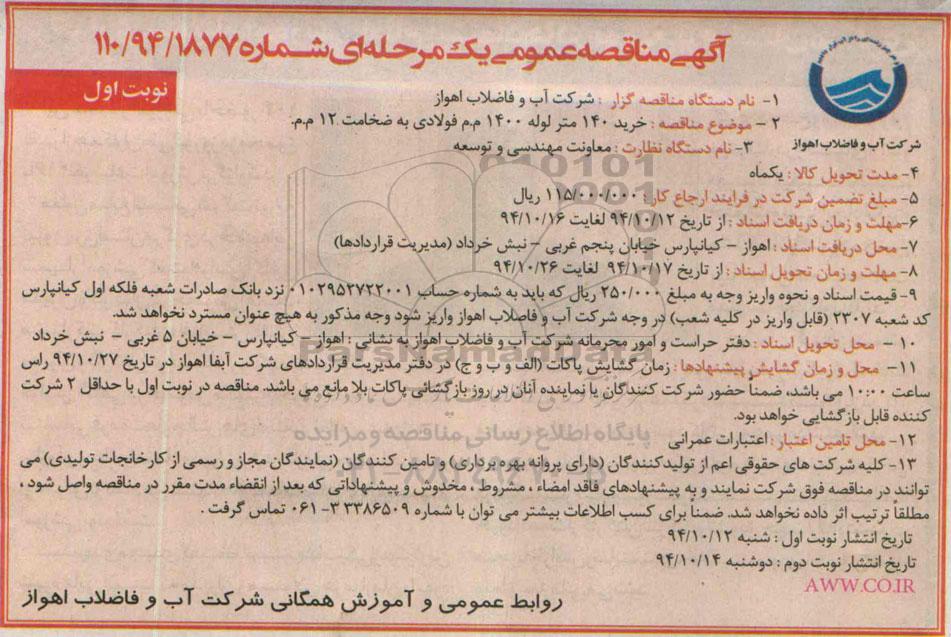 آگهی مناقصه عمومی یک مرحله‌ای شماره ۱۱۰/۹۴/۱۸۷۷
نوبت اول
شرکت آب و فاضلاب اهواز
۱- نام دستگاه مناقصه گزار : شرکت آب و فاضلاب اهواز
۲ - موضوع مناقصه : خرید ۱۴۰ متر لوله ۱۴۰۰ م.م فولادی به ضخامت ۱۲ م.م.
۳- نام دستگاه نظارت : معاونت مهندسی و توسعه
۴- مدت تحویل کالا : یکماه
۵- مبلغ تضمین شرکت در فرایند ارجاع کار : ۱۱۵/۰۰۰/۰۰۰ ریال
۶- مهلت و زمان دریافت اسناد : از تاریخ ۹۴/۱۰/۱۲ لغایت ۹۴/۱۰/۱۶
۷- محل دریافت اسناد : اهواز - کیانپارس خیابان پنجم غربی - نبش خرداد (مدیریت قراردادها)
۸- مهلت و زمان تحویل اسناد : از تاریخ ۹۴/۱۰/۱۷ لغایت ۹۴/۱۰/۲۶
۹- قیمت اسناد و نحوه واریز وجه به مبلغ ۲۵۰/۰۰۰ ریال که باید به شماره حساب ۰۱۰۲۹۵۲۷۲۲۰۰۱ نزد بانک صادرات شعبه فلکه اول کیانپارس
کد شعبه ۲۳۰۷ (قابل واریز در کلیه شعب) در وجه شرکت آب و فاضلاب اهواز واریز شود وجه مذکور به هیچ عنوان مسترد نخواهد شد.
۱۰ - محل تحویل اسناد : دفتر حراست و امور محرمانه شرکت آب و فاضلاب اهواز به نشانی : اهواز - کیانپارس - خیابان ۵ غربی - نبش خرداد
۱۱- محل و زمان گشایش پیشنهادها : زمان گشایش پاکات (الف و ب و ج) در دفتر مدیریت قراردادهای شرکت آبفا اهواز در تاریخ ۹۴/۱۰/۲۷ راس
ساعت ۱۰:۰۰ می باشد، ضمناً حضور شرکت کنندگان یا نماینده آنان در روز بازگشائی پاکات بلا مانع می باشد. مناقصه در نوبت اول با حداقل ۲ شرکت
کننده قابل بازگشایی خواهد بود.
۱۲- محل تامین اعتبار : اعتبارات عمرانی
۱۳- کلیه شرکت های حقوقی اعم از تولیدکنندگان (دارای پروانه بهره برداری) و تامین کنندگان (نمایندگان مجاز و رسمی از کارخانجات تولیدی) می
توانند در مناقصه فوق شرکت نمایند و به پیشنهادهای فاقد امضاء ، مشروط ، مخدوش و پیشنهاداتی که بعد از انقضاء مدت مقرر در مناقصه واصل شود ،
مطلقا ترتیب اثر داده نخواهد شد. ضمناً برای کسب اطلاعات بیشتر می توان با شماره ۳۳۳۸۶۵۰۹ -۰۶۱ تماس گرفت .
تاریخ انتشار نوبت اول : شنبه ۹۴/۱۰/۱۲
تاریخ انتشار نوبت دوم : دوشنبه ۹۴/۱۰/۱۴
AWW.CO.IR
روابط عمومی و آموزش همگانی شرکت آب و فاضلاب اهواز
ParsNamadData
پایگاه اطلاع رسانی مناقصه و مزایده